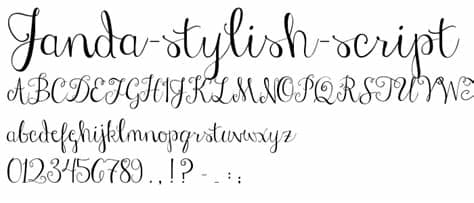 Janda-stylish-script
ABCDEFGHIJKLMNOPQRSTUVWX
abcdefghijklmnopqrstuvwxyz
0123456789.,!?-_:;